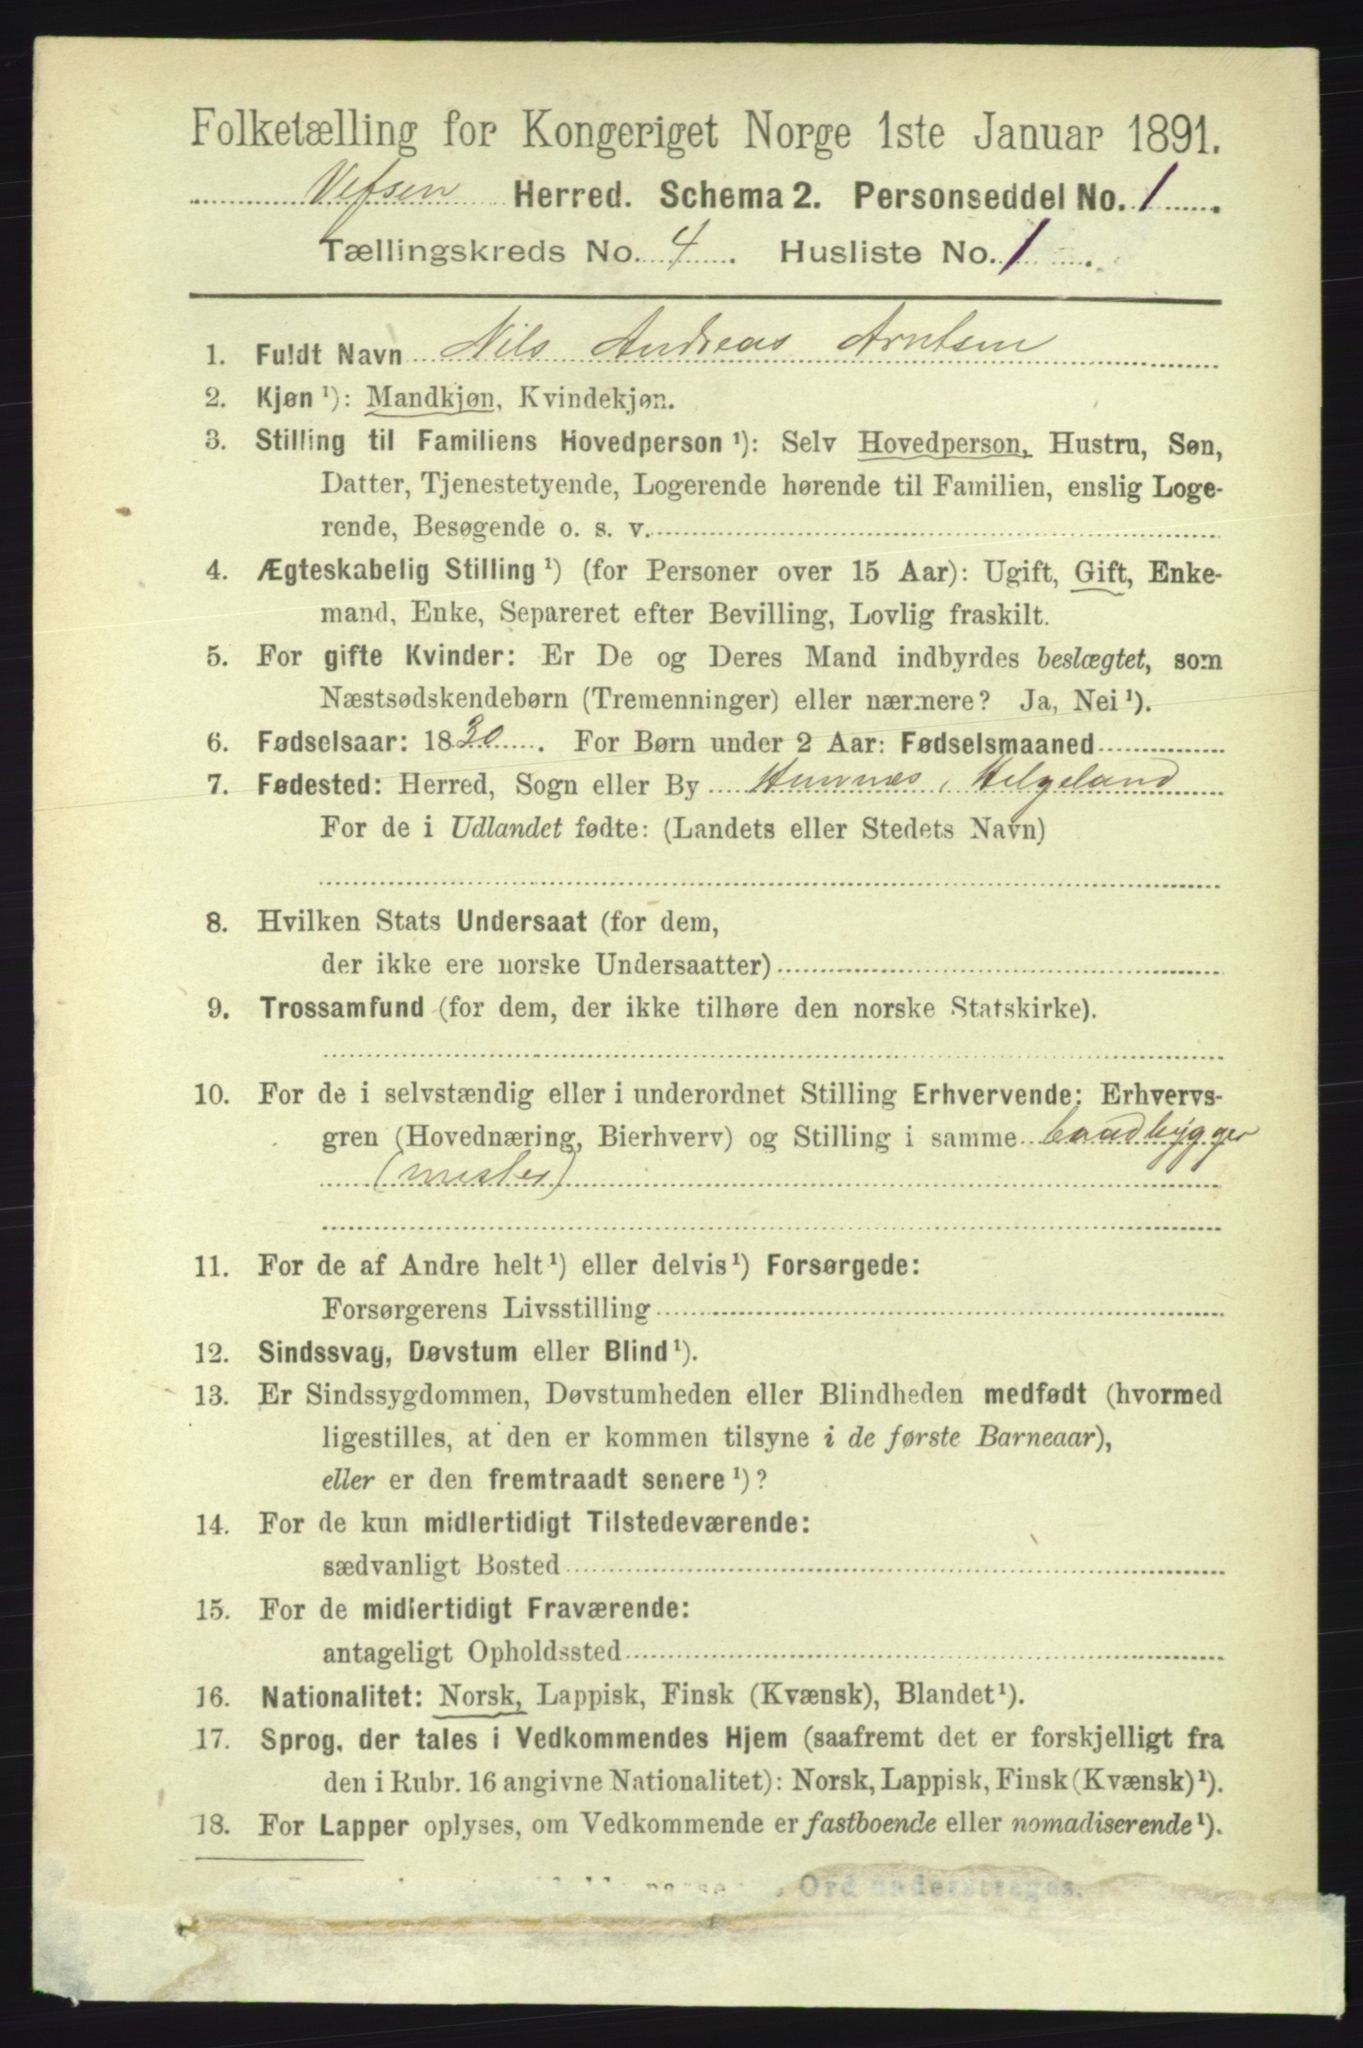 Folketælling for Kongeriget Norge 1ste Januar 1891.
Vefsen Herred. Schema 2. Personseddel No. 1.
Tællingskreds No. 4. Husliste No. 1.
1. Fuldt Navn Nils Andreas Arntsen
2. Kjøn ¹): Mandkjøn, Kvindekjøn.
3. Stilling til Familiens Hovedperson ¹): Selv Hovedperson, Hustru, Søn,
Datter, Tjenestetyende, Logerende hørende til Familien, enslig Loge-
rende, Besøgende o. s. v.
4. Ægteskabelig Stilling ¹) (for Personer over 15 Aar): Ugift, Gift, Enke-
mand, Enke, Separeret efter Bevilling, Lovlig fraskilt.
5. For gifte Kvinder: Er De og Deres Mand indbyrdes beslægtet, som
Næstsødskendebørn (Tremenninger) eller nærmere? Ja, Nei ¹).
6. Fødselsaar: 1830. For Børn under 2 Aar: Fødselsmaaned
7. Fødested: Herred, Sogn eller By Hemnes, Helgeland
For de i Udlandet fødte: (Landets eller Stedets Navn)
8. Hvilken Stats Undersaat (for dem,
der ikke ere norske Undersaatter)
9. Trossamfund (for dem, der ikke tilhøre den norske Statskirke).
10. For de i selvstændig eller i underordnet Stilling Erhvervende: Erhvervs-
gren (Hovednæring, Bierhverv) og Stilling i samme baadbygger
(mester)
11. For de af Andre helt ¹) eller delvis ¹) Forsørgede:
Forsørgerens Livsstilling
12. Sindssvag, Døvstum eller Blind ¹).
13. Er Sindssygdommen, Døvstumheden eller Blindheden medfødt (hvormed
ligestilles, at den er kommen tilsyne i de første Barneaar),
eller er den fremtraadt senere ¹)?
14. For de kun midlertidigt Tilstedeværende:
sædvanligt Bosted
15. For de midlertidigt Fraværende:
antageligt Opholdssted
16. Nationalitet: Norsk, Lappisk, Finsk (Kvænsk), Blandet ¹).
17. Sprog, der tales i Vedkommendes Hjem (saafremt det er forskjelligt fra
den i Rubr. 16 angivne Nationalitet): Norsk, Lappisk, Finsk (Kvænsk) ¹).
18. For Lapper oplyses, om Vedkommende er fastboende eller nomadiserende ¹).
Ord understreges.